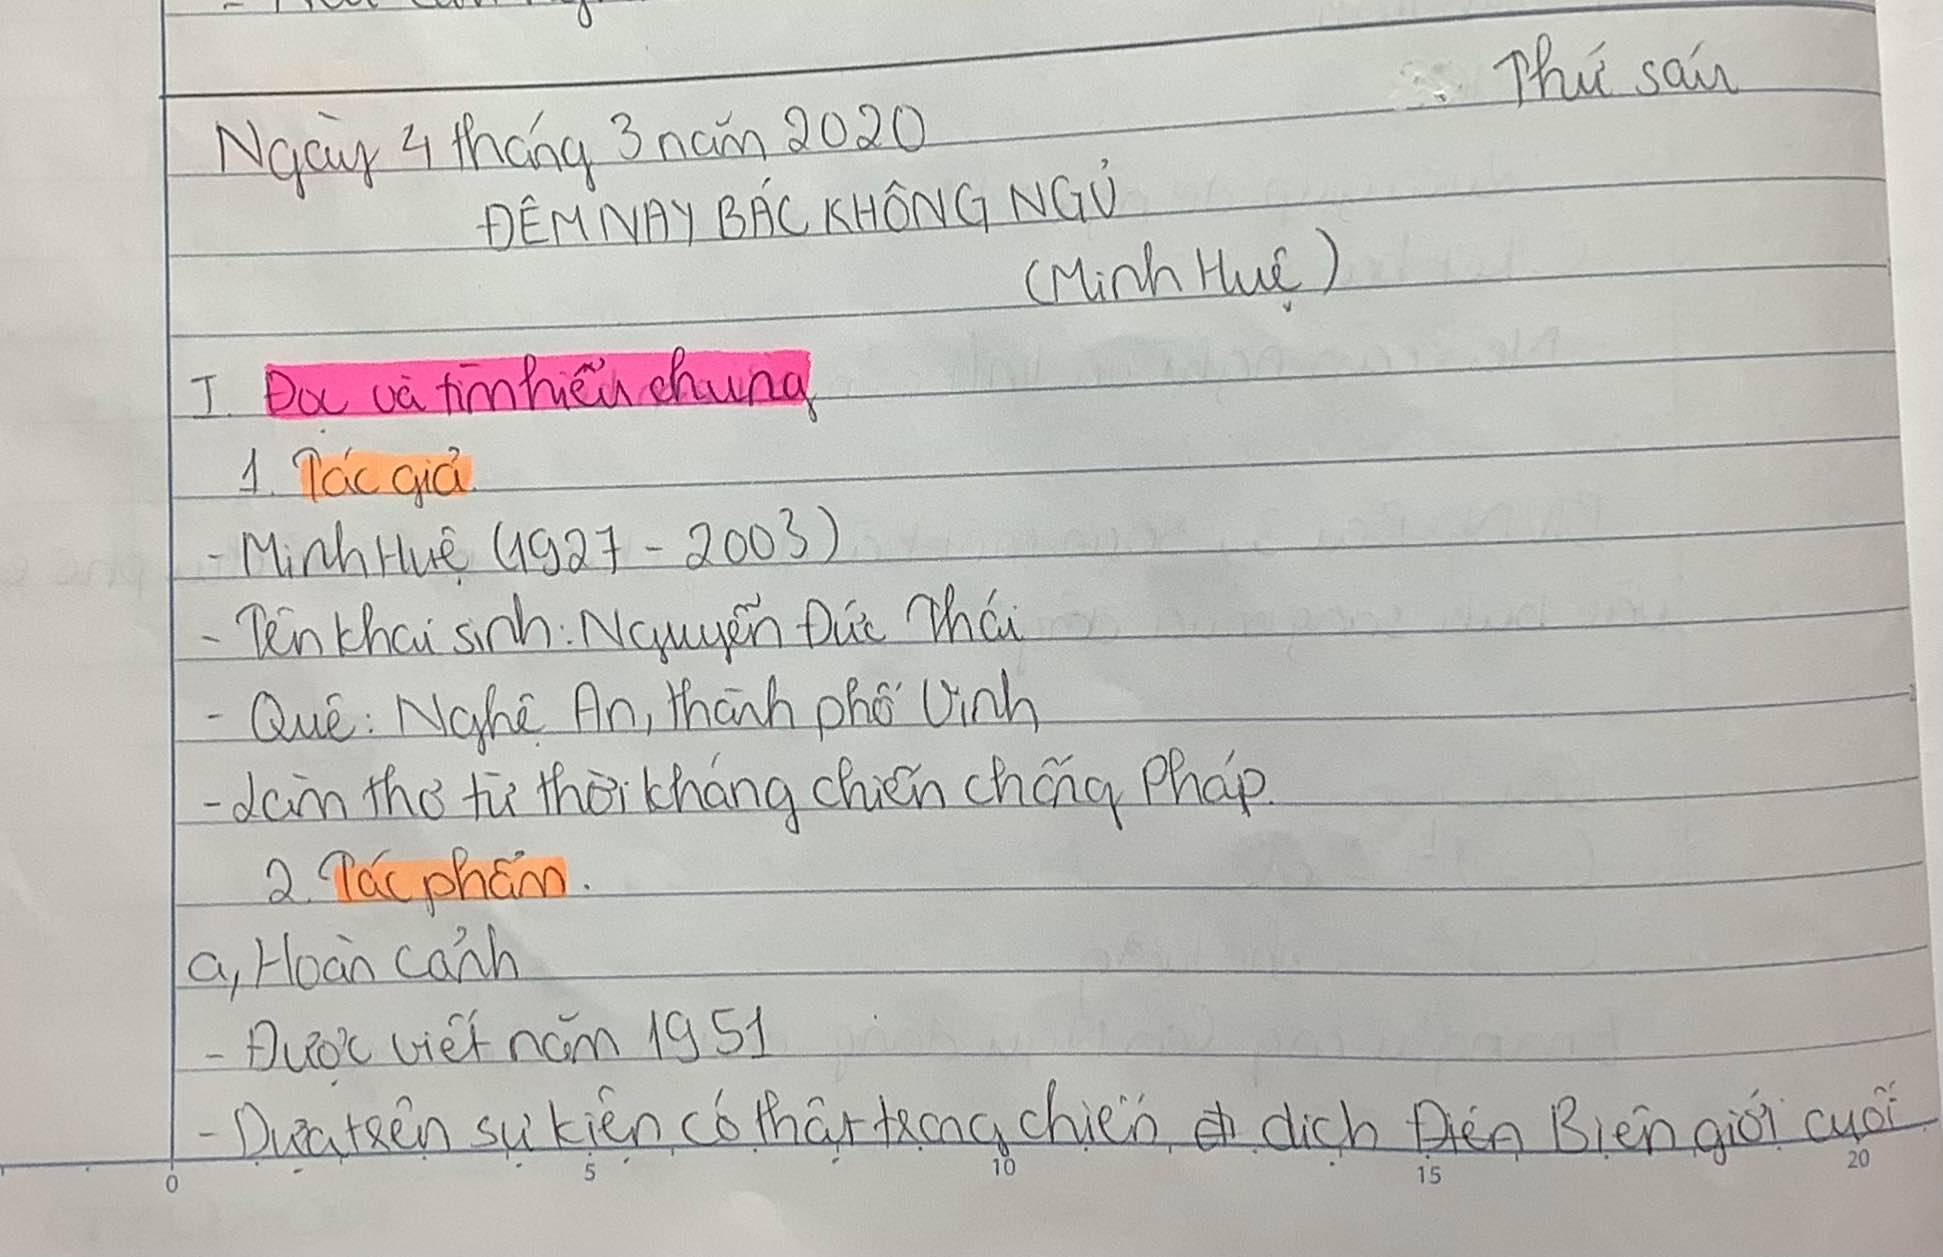 Thứ sáu
Ngày 4 tháng 3 năm 2020
ĐÊM NAY BÁC KHÔNG NGỦ
(Minh Huệ)
I. Đọc và tìm hiểu chung
1. Tác giả
- Minh Huệ (1927 - 2003)
- Tên khai sinh: Nguyễn Đức Thái
- Quê: Nghệ An, thành phố Vinh
- Làm thơ từ thời kháng chiến chống Pháp.
2. Tác phẩm.
a, Hoàn cảnh
- Được viết năm 1951
- Dựa trên sự kiện có thật trong chiến dịch Điện Biên giới cuối
0 5 10 15 20